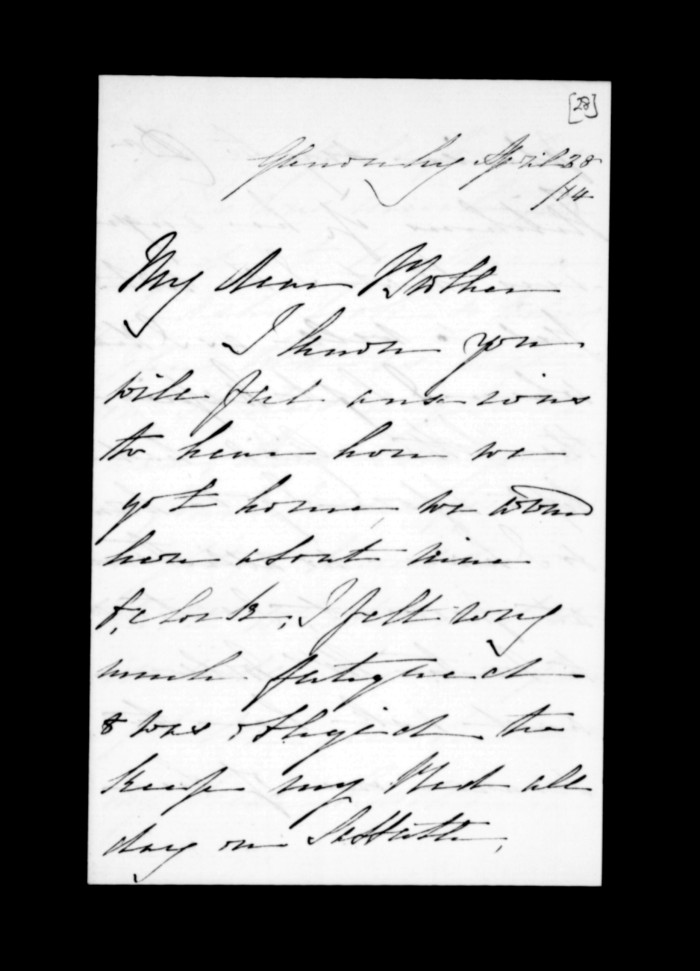 [28]
Glenormiston April 28
/74
My dear Brother
I know you
will feel anxious
to hear how we
got home, we
here about nine
O,clock, I felt very
much fatigued
& was obliged to
keep my Bed all
day on Sabbath,